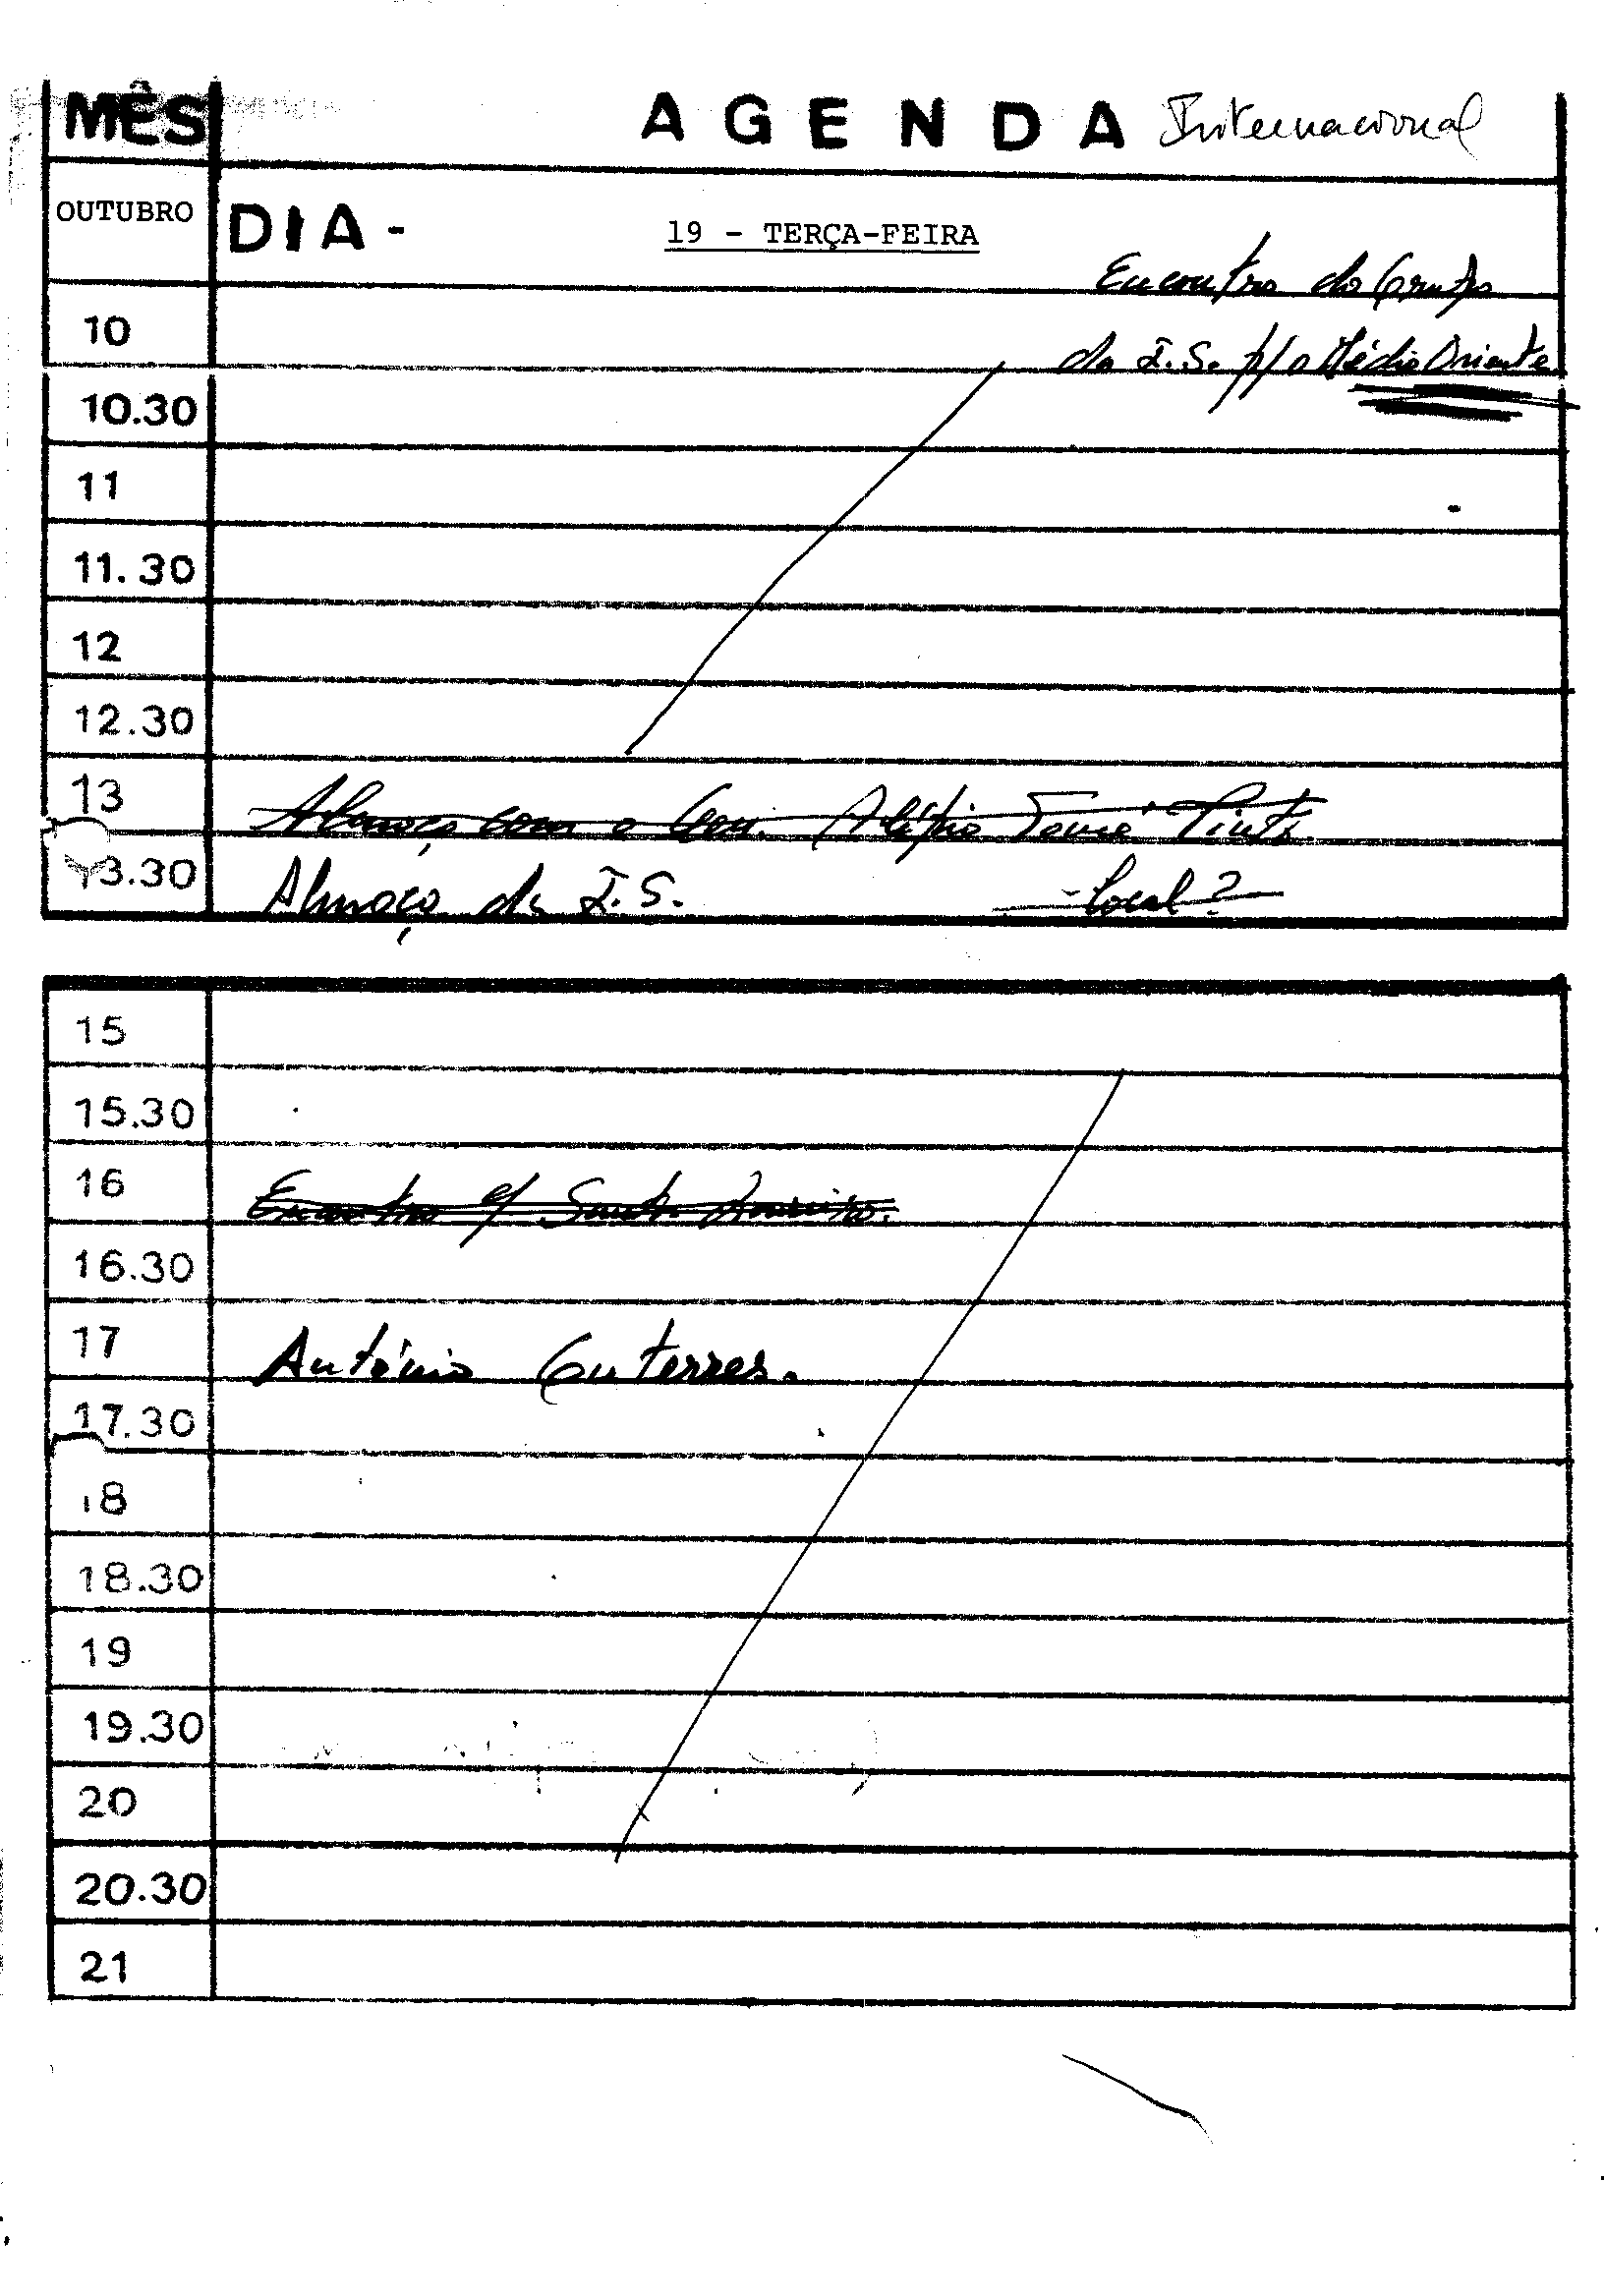 MÊS AGENDA Internacional
OUTUBRO DIA - 19 - TERÇA-FEIRA
Encontro do Grupo
10
da I.S. p/ o Médio Oriente
10.30
11
11.30
12
12.30
13 Almoço com o Gen. Alípio Tomé Pinto
13.30 Almoço da I.S. - Local?
15
15.30
16 Encontro c/
16.30
17 António Guterres.
17.30
18
18.30
19
19.30
20
20.30
21